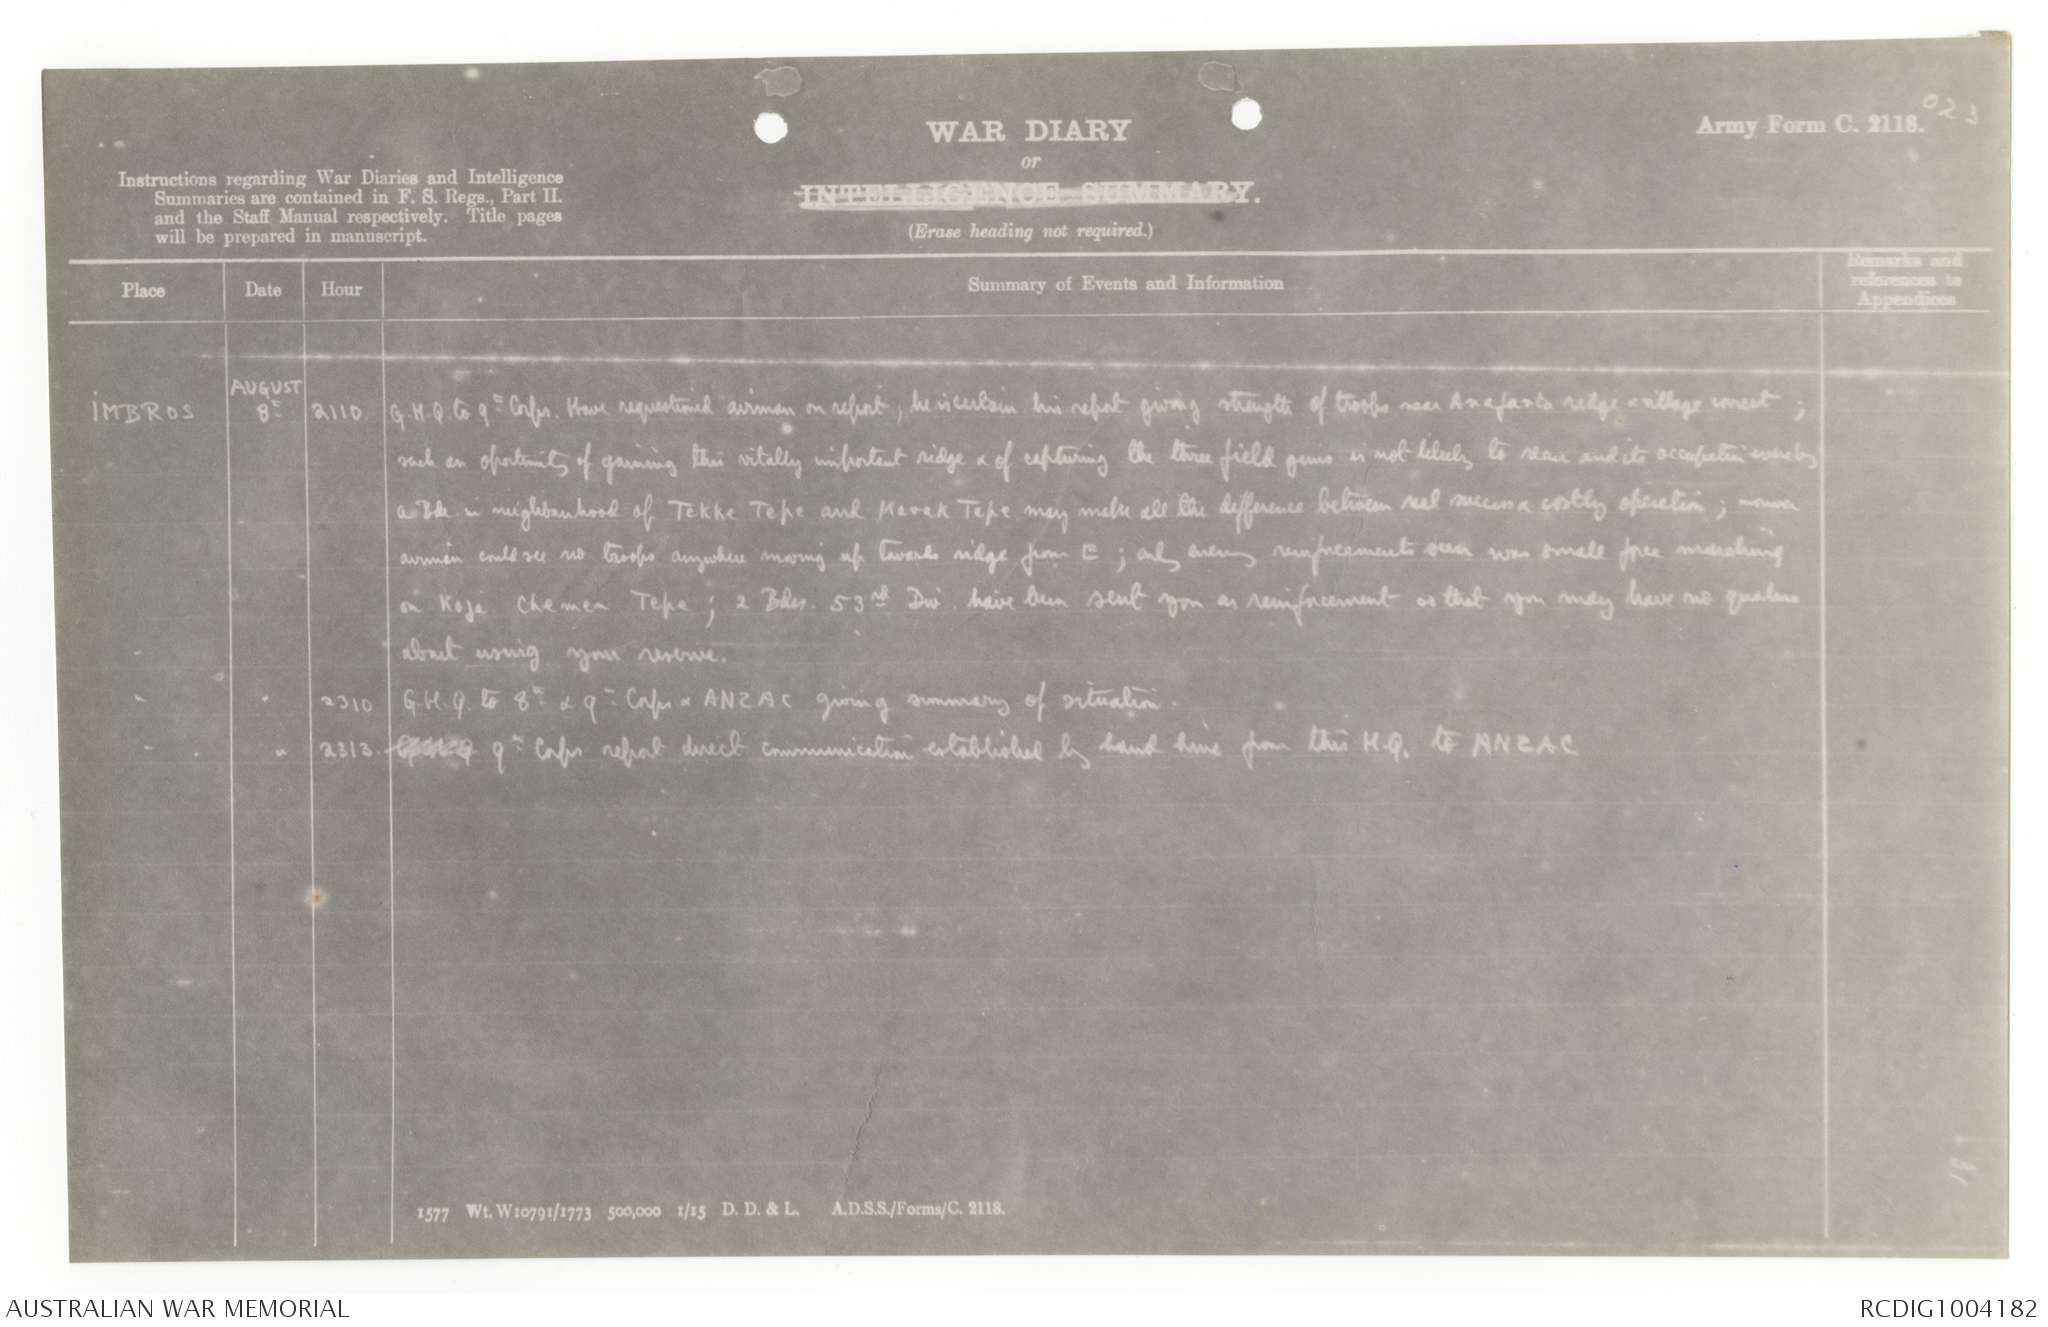 023
Army Form C. 2118.
WAR DIARY
or
INTELLIGENCE SUMMARY.
(Erase heading not required.)
Instructions regarding War Diaries and Intelligence
Summaries are contained in F. S. Regs., Part II.
and the Staff Manual respectively. Title pages
will be prepared in manuscript.
Place Date Hour Summary of Events and Information Remarks and references to Appendices
AUGUST
IMBROS 8th 2110 G.H.Q. to 9th Corps. Have requestioned airman on report, he is certain his report giving strength of troops near Anafarta ridge & village correct;
such an oportunity of gaining this vitally important ridge & of capturing the three field guns is not likely to and its occupation even by
a Bde in neighbourhood of Tekke Tepe and Kavak Tepe may make all the difference between real success & costly operation; moreover
airman could see no troops anywhere moving up towards ridge from E; only enemy reinforcements seen was small force marching
on Koja Chemen Tepe; 2 Bdes. 53rd Div. have been sent you as reinforcement so that you may have no qualms
about using your reserve.
" " 2310 G.H.Q. to 8th & 9th Corps & ANZAC giving summary of situation.
" " 2313 9th Corps report direct communication established by from this H.Q. to ANZAC
1577 Wt. W10791/1773 500,000 1/15 D. D. & L. A.D.S.S./Forms/C. 2118.
AUSTRALIAN WAR MEMORIAL RCDIG1004182